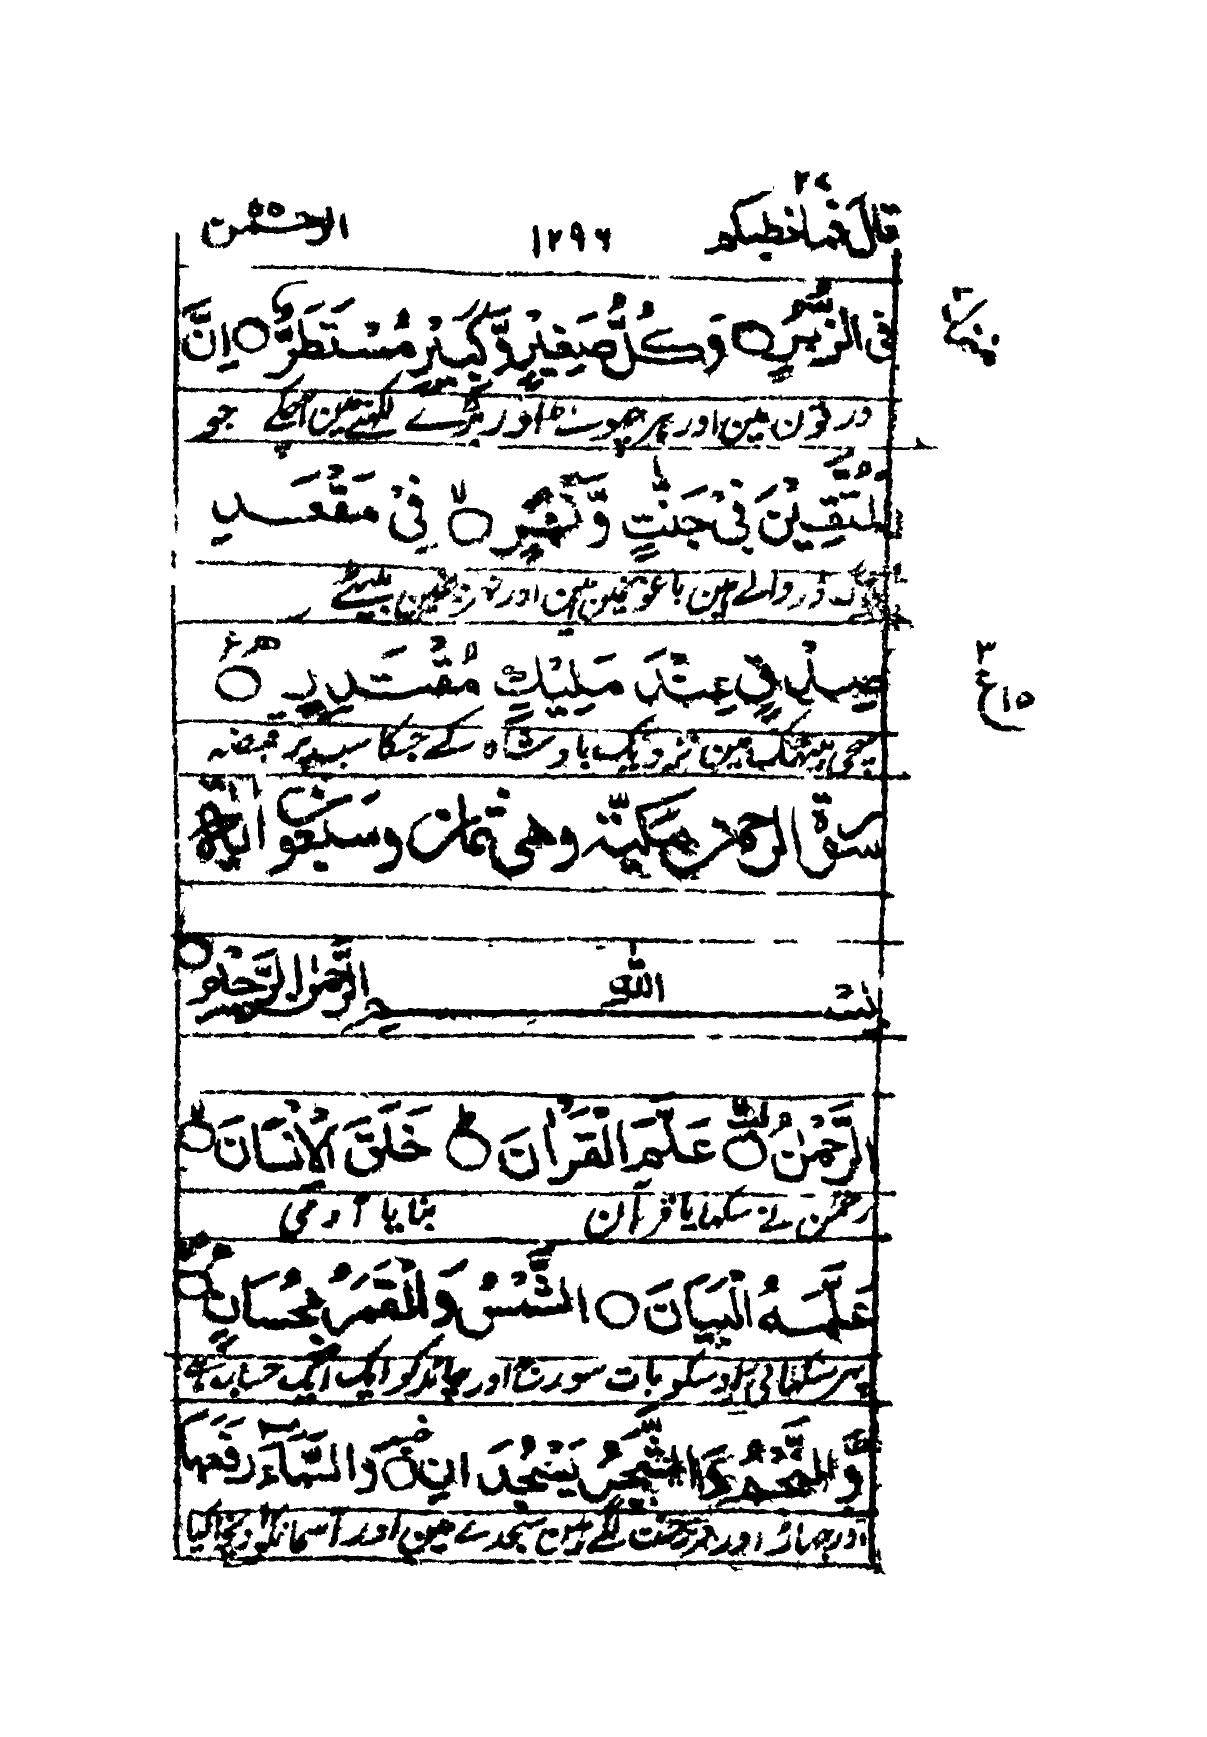 قال فما خطبكم ٢٧ ١٢٩٦ الرحمٰن ٥٥
فِی الزُّبُرِ ○ وَكُلُّ صَغِیْرٍ وَّكَبِیْرٍ مُّسْتَطَرٌ ○ اِنَّ
ورقون مین اور ہر چھوٹے اور بڑے لکھنے مین آچکے جو
الْمُتَّقِیْنَ فِیْ جَنّٰتٍ وَّنَهَرٍ ○ فِیْ مَقْعَدِ
ڈر والے ہین باغونمین ہین اور نہرونمین بیٹھے
صِدْقٍ عِنْدَ مَلِیْكٍ مُّقْتَدِرٍ ○
سچی بیٹھک مین نزدیک بادشاہ کے جسکا سب پر قبضہ
٣ ع ١٥
سورة الرحمن مكية وهی ثمان وسبعون اٰیة
بِسْمِ اللّٰهِ الرَّحْمٰنِ الرَّحِیْمِ ○
اَلرَّحْمٰنُ ○ عَلَّمَ الْقُرْاٰنَ ○ خَلَقَ الْاِنْسَانَ ○
رحمٰن نے سکھایا قرآن بنایا آدمی
عَلَّمَهُ الْبَیَانَ ○ اَلشَّمْسُ وَالْقَمَرُ بِحُسْبَانٍ ○
پھر سکھائی اوسکو بات سورج اور چاندکو ایک حساب ہے
وَّالنَّجْمُ وَالشَّجَرُ یَسْجُدَانِ ○ وَالسَّمَآءَ رَفَعَهَا
اور جھاڑ اور درخت لگے ہین سجدے مین اور آسمانکو اونچا کیا